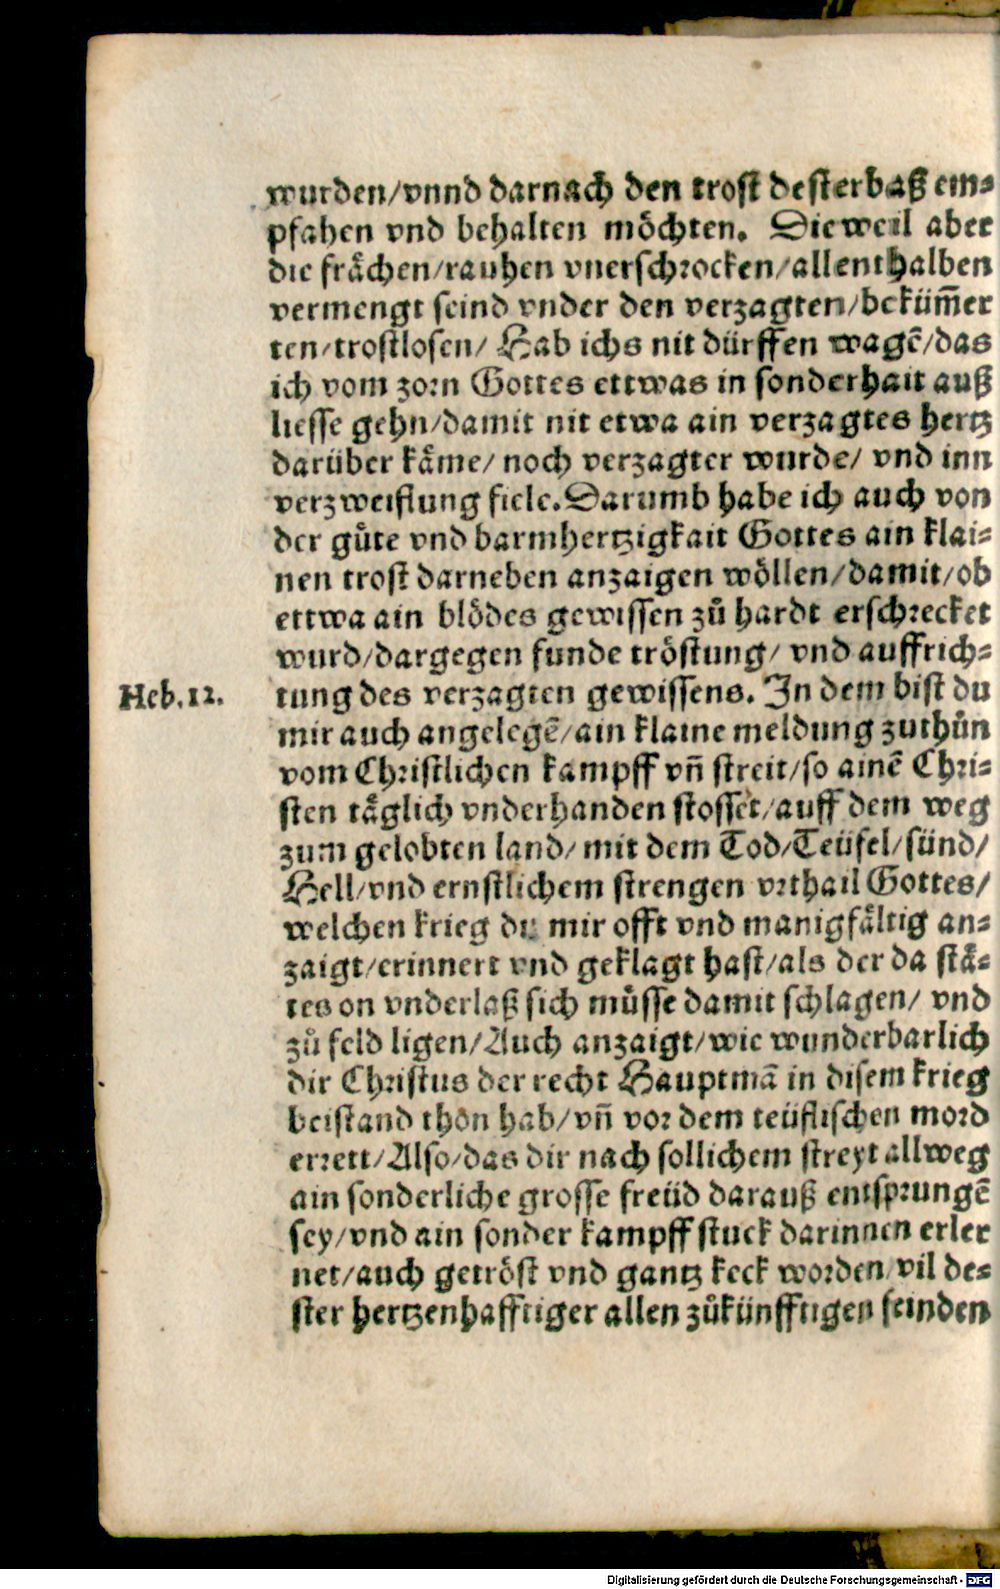 wurden/vnnd darnach den trost desterbaß em⸗
pfahen vnd behalten möchten. Dieweil aber
die fraͤchen/rauhen vnerschrocken/allenthalben
vermengt seind vnder den verzagten/beküm̃er
ten/trostlosen/ Hab ichs nit dürffen wagẽ/das
ich vom zorn Gottes ettwas in sonderhait auß
liesse gehn/damit nit etwa ain verzagtes hertz
darüber kaͤme/ noch verzagter wurde/ vnd inn
verzweiflung fiele. Darumb habe ich auch von
der guͤte vnd barmhertzigkait Gottes ain klai⸗
nen trost darneben anzaigen woͤllen/damit/ob
ettwa ain bloͤdes gewissen zuͦ hardt erschrecket
wurd/dargegen funde troͤstung/ vnd auffrich⸗
Heb. 12.
tung des verzagten gewissens. In dem bist du
mir auch angelegẽ/ain klaine meldung zuthuͦn
vom Christlichen kampff vñ streit/so ainẽ Chri⸗
sten taͤglich vnderhanden stosset/auff dem weg
zum gelobten land/ mit dem Tod/Teüfel/sünd/
Hell/vnd ernstlichem strengen vrthail Gottes/
welchen krieg du mir offt vnd manigfaͤltig an⸗
zaigt/erinnert vnd geklagt hast/als der da staͤ⸗
tes on vnderlaß sich muͤsse damit schlagen/ vnd
zuͦ feld ligen/Auch anzaigt/wie wunderbarlich
dir Christus der recht Hauptmã in disem krieg
beistand thon hab/vñ vor dem teüflischen mord
errett/Also/das dir nach sollichem streyt allweg
ain sonderliche grosse freüd darauß entsprungẽ
sey/vnd ain sonder kampff stuck darinnen erler
net/auch getroͤst vnd gantz keck worden/vil de⸗
ster hertzenhafftiger allen zuͦkünfftigen feinden
Digitalisierung gefördert durch die Deutsche Forschungsgemeinschaft - DFG